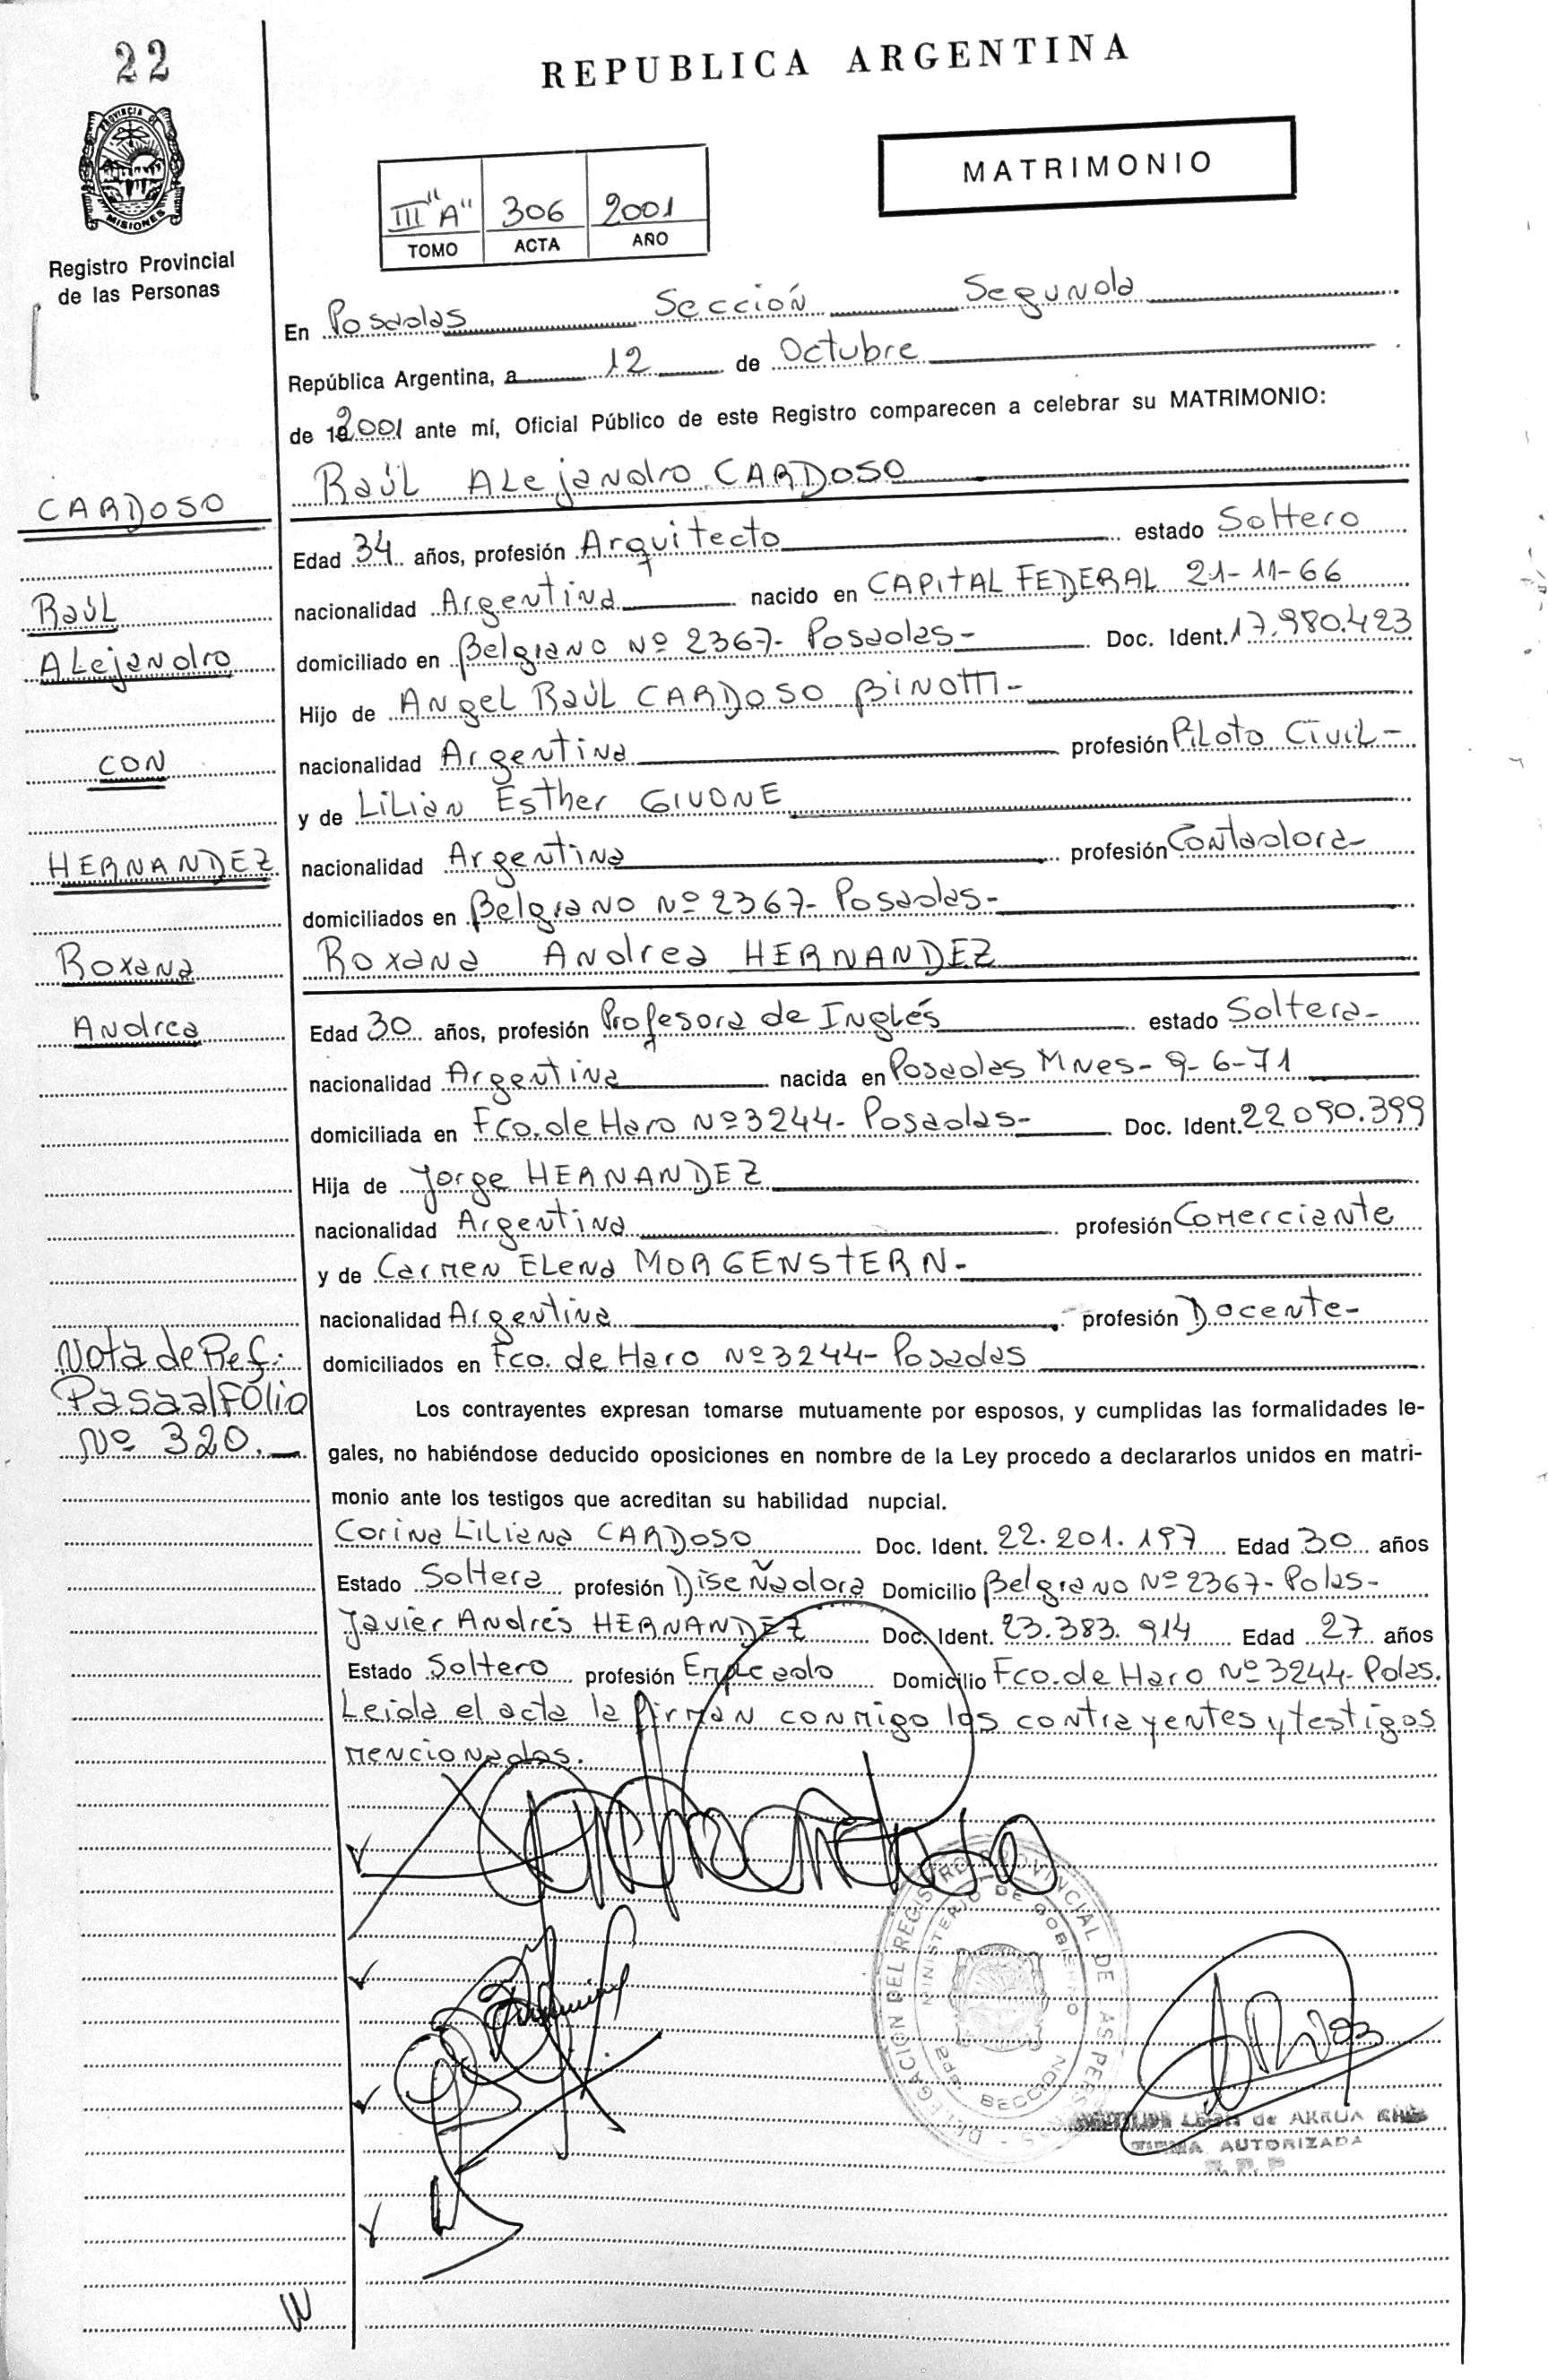 22
REPUBLICA ARGENTINA
PROVINCIA DE
MISIONES
Registro Provincial
de las Personas
MATRIMONIO
III "A" 306 2001
TOMO ACTA AÑO
En Posadas Sección Segunda
República Argentina, a 12 de Octubre
de 2001 ante mí, Oficial Público de este Registro comparecen a celebrar su MATRIMONIO:
Raúl Alejandro CARDOSO
CARDOSO
Edad 34 años, profesión Arquitecto estado Soltero
Raúl
nacionalidad Argentina nacido en CAPITAL FEDERAL 21-11-66
Alejandro
domiciliado en Belgrano Nº 2367- Posadas- Doc. Ident. 17.980.423
Hijo de Angel Raúl CARDOSO BINOTTI-
CON
nacionalidad Argentina profesión Piloto Civil-
y de Lilian Esther GIVONE
HERNANDEZ
nacionalidad Argentina profesión Contadora-
domiciliados en Belgrano Nº 2367- Posadas-
Roxana
Roxana Andrea HERNANDEZ
Andrea
Edad 30 años, profesión Profesora de Inglés estado Soltera-
nacionalidad Argentina nacida en Posadas Mnes- 9-6-71
domiciliada en Fco. de Haro Nº 3244- Posadas- Doc. Ident. 22.090.399
Hija de Jorge HERNANDEZ
nacionalidad Argentina profesión Comerciante
y de Carmen Elena MORGENSTERN-
nacionalidad Argentina profesión Docente-
domiciliados en Fco. de Haro Nº 3244- Posadas
Nota de Ref:
Pasa al Fólio
Nº 320.
Los contrayentes expresan tomarse mutuamente por esposos, y cumplidas las formalidades le-
gales, no habiéndose deducido oposiciones en nombre de la Ley procedo a declararlos unidos en matri-
monio ante los testigos que acreditan su habilidad nupcial.
Corina Liliana CARDOSO Doc. Ident. 22.201.197 Edad 30 años
Estado Soltera profesión Diseñadora Domicilio Belgrano Nº 2367- Pdas-
Javier Andrés HERNANDEZ Doc. Ident. 23.383.914 Edad 27 años
Estado Soltero profesión Empleado Domicilio Fco. de Haro Nº 3244- Pdas.
Leida el acta la firman conmigo los contrayentes y testigos
mencionados.
DELEGACION DEL REGISTRO PROVINCIAL DE LAS PERSONAS
MINISTERIO DE GOBIERNO
SECCION
LEON de ARRUA
FIRMA AUTORIZADA